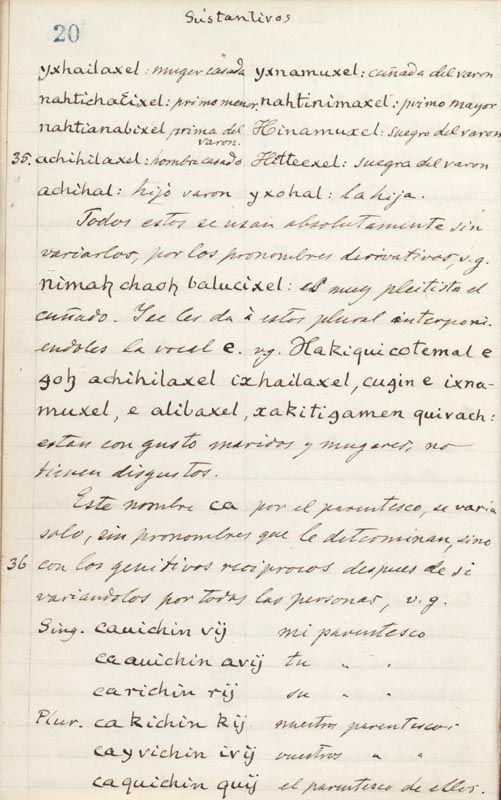 Sustantivos
20
yxhailaxel: muger casada yxnamuxel: cuñada del varon
nahtichaɛixel: primo menor nahtinimaxel: primo mayor
nahtianabixel prima del varon. Hinamuxel: suegro del varon
35. achihilaxel: hombre casado Hitteexel: suegra del varon
achihal: hijo varon yxohal: la hija.
Todos estos se usan absolutamente sin
variarlos, por los pronombres derivativos, v.g.
nimaꜧ chaoꜧ balucixel: es muy pleitista el
cuñado. Y se les da à estos plural interponi-
endoles la vocal e. v.g. Hakiquicotemal e
goꜧ achihilaxel ixhailaxel, cugin e ixna-
muxel, e alibaxel, xakitigamen quivach:
estan con gusto maridos y mugeres, no
tienen disgustos.
Este nombre ca por el parentesco, se varia
solo, sin pronombres que le determinan, sino
36 con los genitivos reciprocos despues de si
variandolos por todas las personas, v.g.
Sing. cauichin vij mi parentesco
ca auichin avij tu " "
ca richin rij su " "
Plur. ca kichin kij nuestros parentescos
ca yvichin ivij vuestros " "
ca quichin quij el parentesco de ellos.